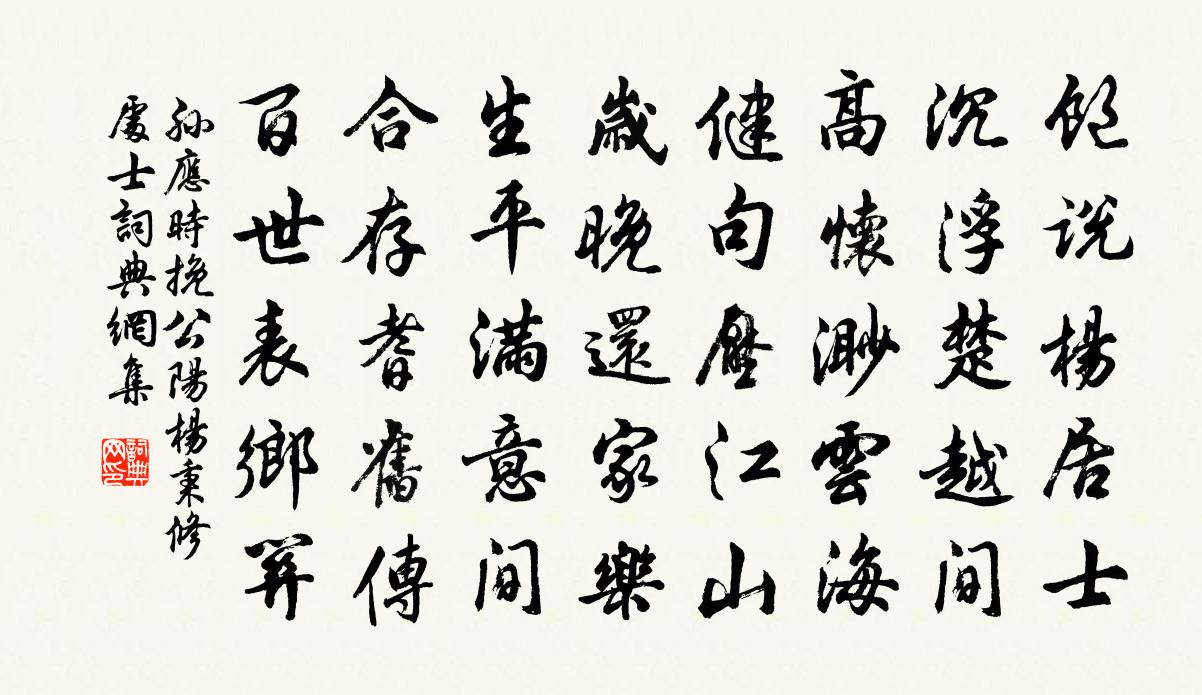 飽說楊居士
沉浮楚越間
高懷渺雲海
健句壓江山
歲晚還家樂
生平滿意間
合存耆舊傳
百世表鄉關
孙應時挽公陽楊秉修
處士詞典網集
詞典
网印